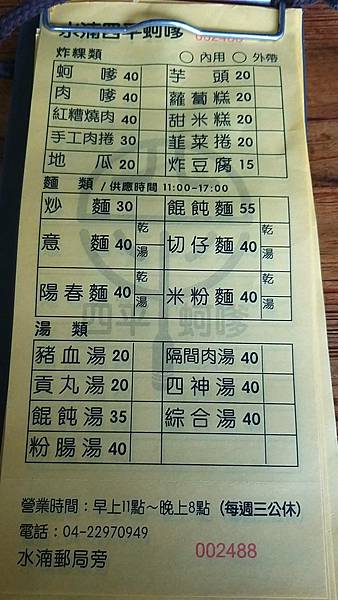 水湳四平蚵嗲
002488
炸粿類 ○內用 ○外帶
蚵嗲 40 芋頭 20
肉嗲 40 蘿蔔糕 20
紅糟燒肉 40 甜米糕 20
手工肉捲 30 韮菜捲 20
地瓜 20 炸豆腐 15
麵類 / 供應時間 11:00~17:00
炒麵 30 餛飩麵 55
意麵 40 乾 湯 切仔麵 40 乾 湯
陽春麵 40 乾 湯 米粉麵 40 乾 湯
四平蚵嗲
湯類
豬血湯 20 隔間肉湯 40
貢丸湯 20 四神湯 40
餛飩湯 35 綜合湯 40
粉腸湯 40
營業時間：早上11點～晚上8點（每週三公休）
電話：04-22970949
水湳郵局旁 002488